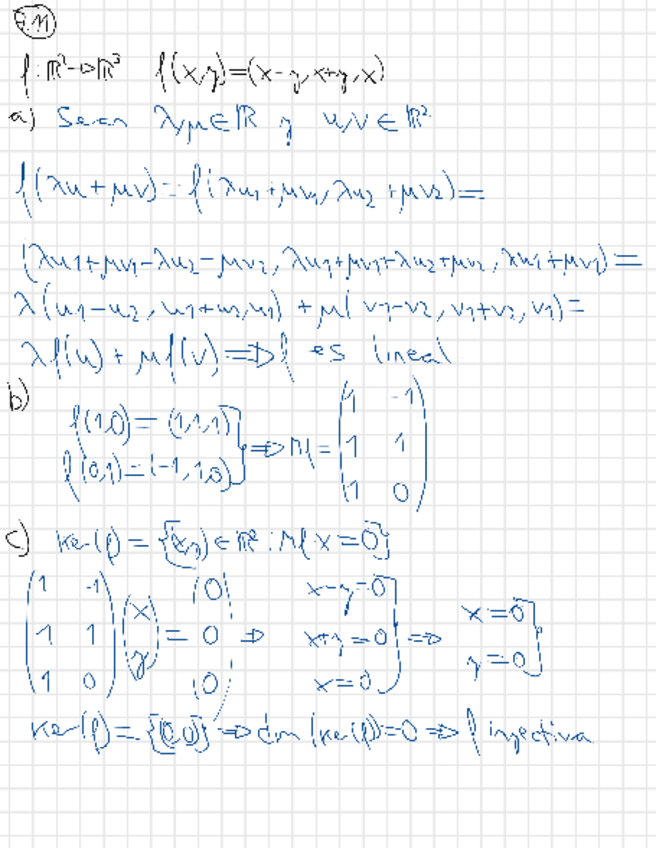 7.11
f: ℝ²→ℝ³ f(x,y)=(x-y,x+y,x)
a) Sean λ,μ∈ℝ y u,v∈ℝ²
f(λu+μv)=f(λu1+μv1,λu2+μv2)=
(λu1+μv1-λu2-μv2,λu1+μv1+λu2+μv2,λu1+μv1)=
λ(u1-u2,u1+u2,u1)+μ(v1-v2,v1+v2,v1)=
λf(u)+μf(v)⇒f es lineal
b)
f(1,0)=(1,1,1)
f(0,1)=(-1,1,0)
⇒Mf=
1 -1
1 1
1 0
c) Ker(f)={(x,y)∈ℝ²:Mf X=0}
1 -1 0 x-y=0
1 1 x y = 0 ⇒ x+y=0 ⇒ x=0 y=0
1 0 0 x=0
Ker(f)={(0,0)}⇒dim(Ker(f))=0⇒f inyectiva